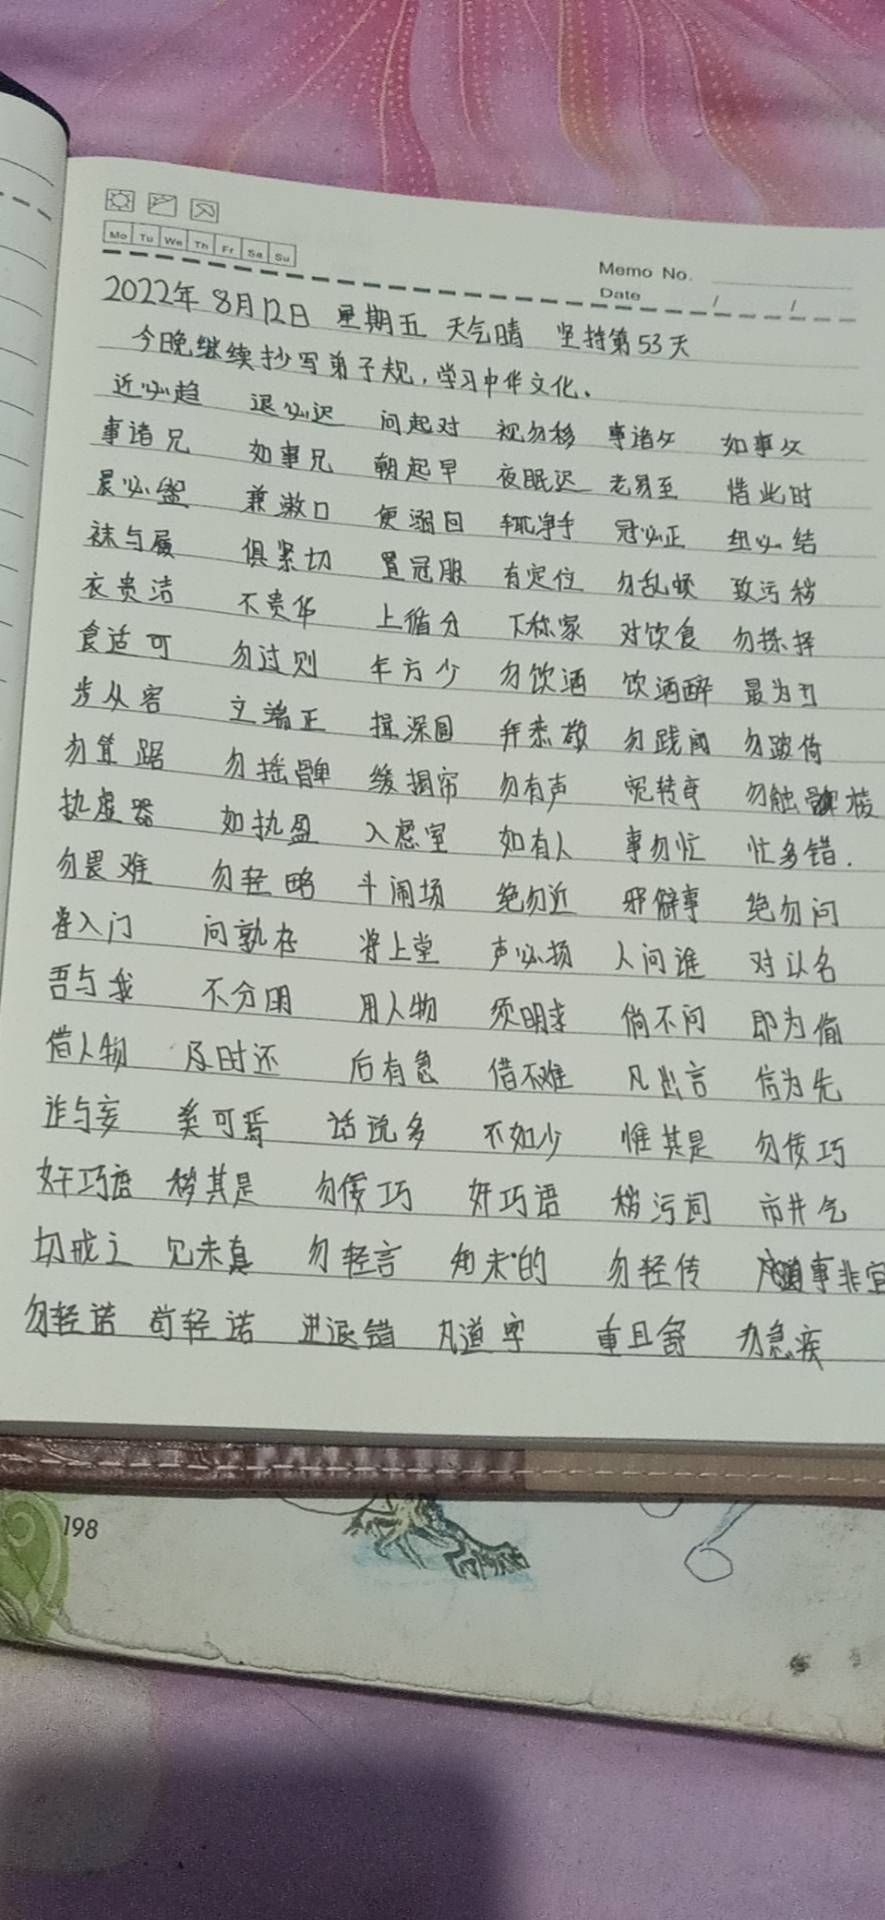 Mo Tu We Th Fr Sa Su
Memo No.
Date / /
2022年8月12日 星期五 天气晴 坚持第53天
今晚继续抄写弟子规,学习中华文化、
近必趋 退必迟 问起对 视勿移 事诸父 如事父
事诸兄 如事兄 朝起早 夜眠迟 老易至 惜此时
晨必盥 兼漱口 便溺回 辄净手 冠必正 纽必结
袜与履 俱紧切 置冠服 有定位 勿乱顿 致污秽
衣贵洁 不贵华 上循分 下称家 对饮食 勿拣择
食适可 勿过则 年方少 勿饮酒 饮酒醉 最为丑
步从容 立端正 揖深圆 拜恭敬 勿践阈 勿跛倚
勿箕踞 勿摇髀 缓揭帘 勿有声 宽转弯 勿触棱
执虚器 如执盈 入虚室 如有人 事勿忙 忙多错.
勿畏难 勿轻略 斗闹场 绝勿近 邪僻事 绝勿问
将入门 问孰存 将上堂 声必扬 人问谁 对以名
吾与我 不分明 用人物 须明求 倘不问 即为偷
借人物 及时还 后有急 借不难 凡出言 信为先
诈与妄 奚可焉 话说多 不如少 惟其是 勿佞巧
奸巧语 秽其是 勿佞巧 奸巧语 秽污词 市井气
切戒之 见未真 勿轻言 知未的 勿轻传 事非宜
勿轻诺 苟轻诺 进退错 凡道字 重且舒 勿急疾
198